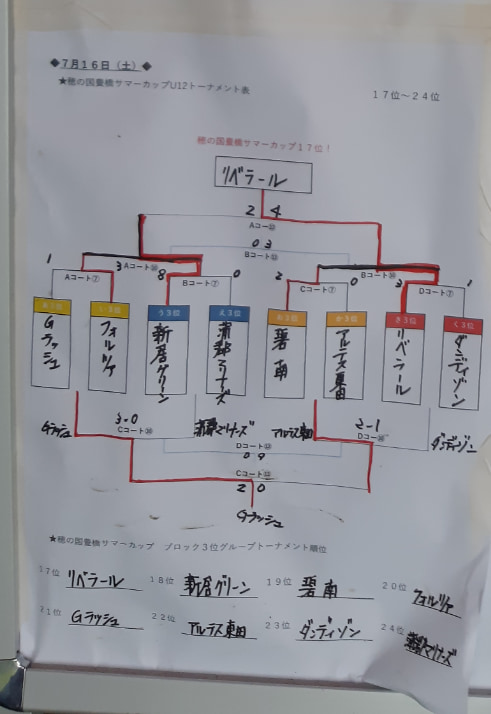 ◆7月16日（土）◆
★穂の国豊橋サマーカップU12トーナメント表 17位～24位
穂の国豊橋サマーカップ17位！
リベラール
2 4
Aコート⑪
0 3
Bコート⑪
1 3 Aコート⑨ 8 0 2 0 Bコート⑨ 3 1
Aコート⑦ Bコート⑦ Cコート⑦ Dコート⑦
あ3位 い3位 う3位 え3位 お3位 か3位 き3位 く3位
Gラッシュ フォルツァ 新居グリーン マリナーズ 碧南 アルテス東田 リベラール ダンディゾン
3-0 2-1
Gラッシュ マリナーズ アルテス東田 ダンディゾン
Cコート⑨ Dコート⑨
Dコート⑪
0 9
Cコート⑪
2 0
Gラッシュ
★穂の国豊橋サマーカップ ブロック3位グループトーナメント順位
17位 リベラール 18位 新居グリーン 19位 碧南 20位 フォルツァ
21位 Gラッシュ 22位 アルテス東田 23位 ダンディゾン 24位 マリナーズ